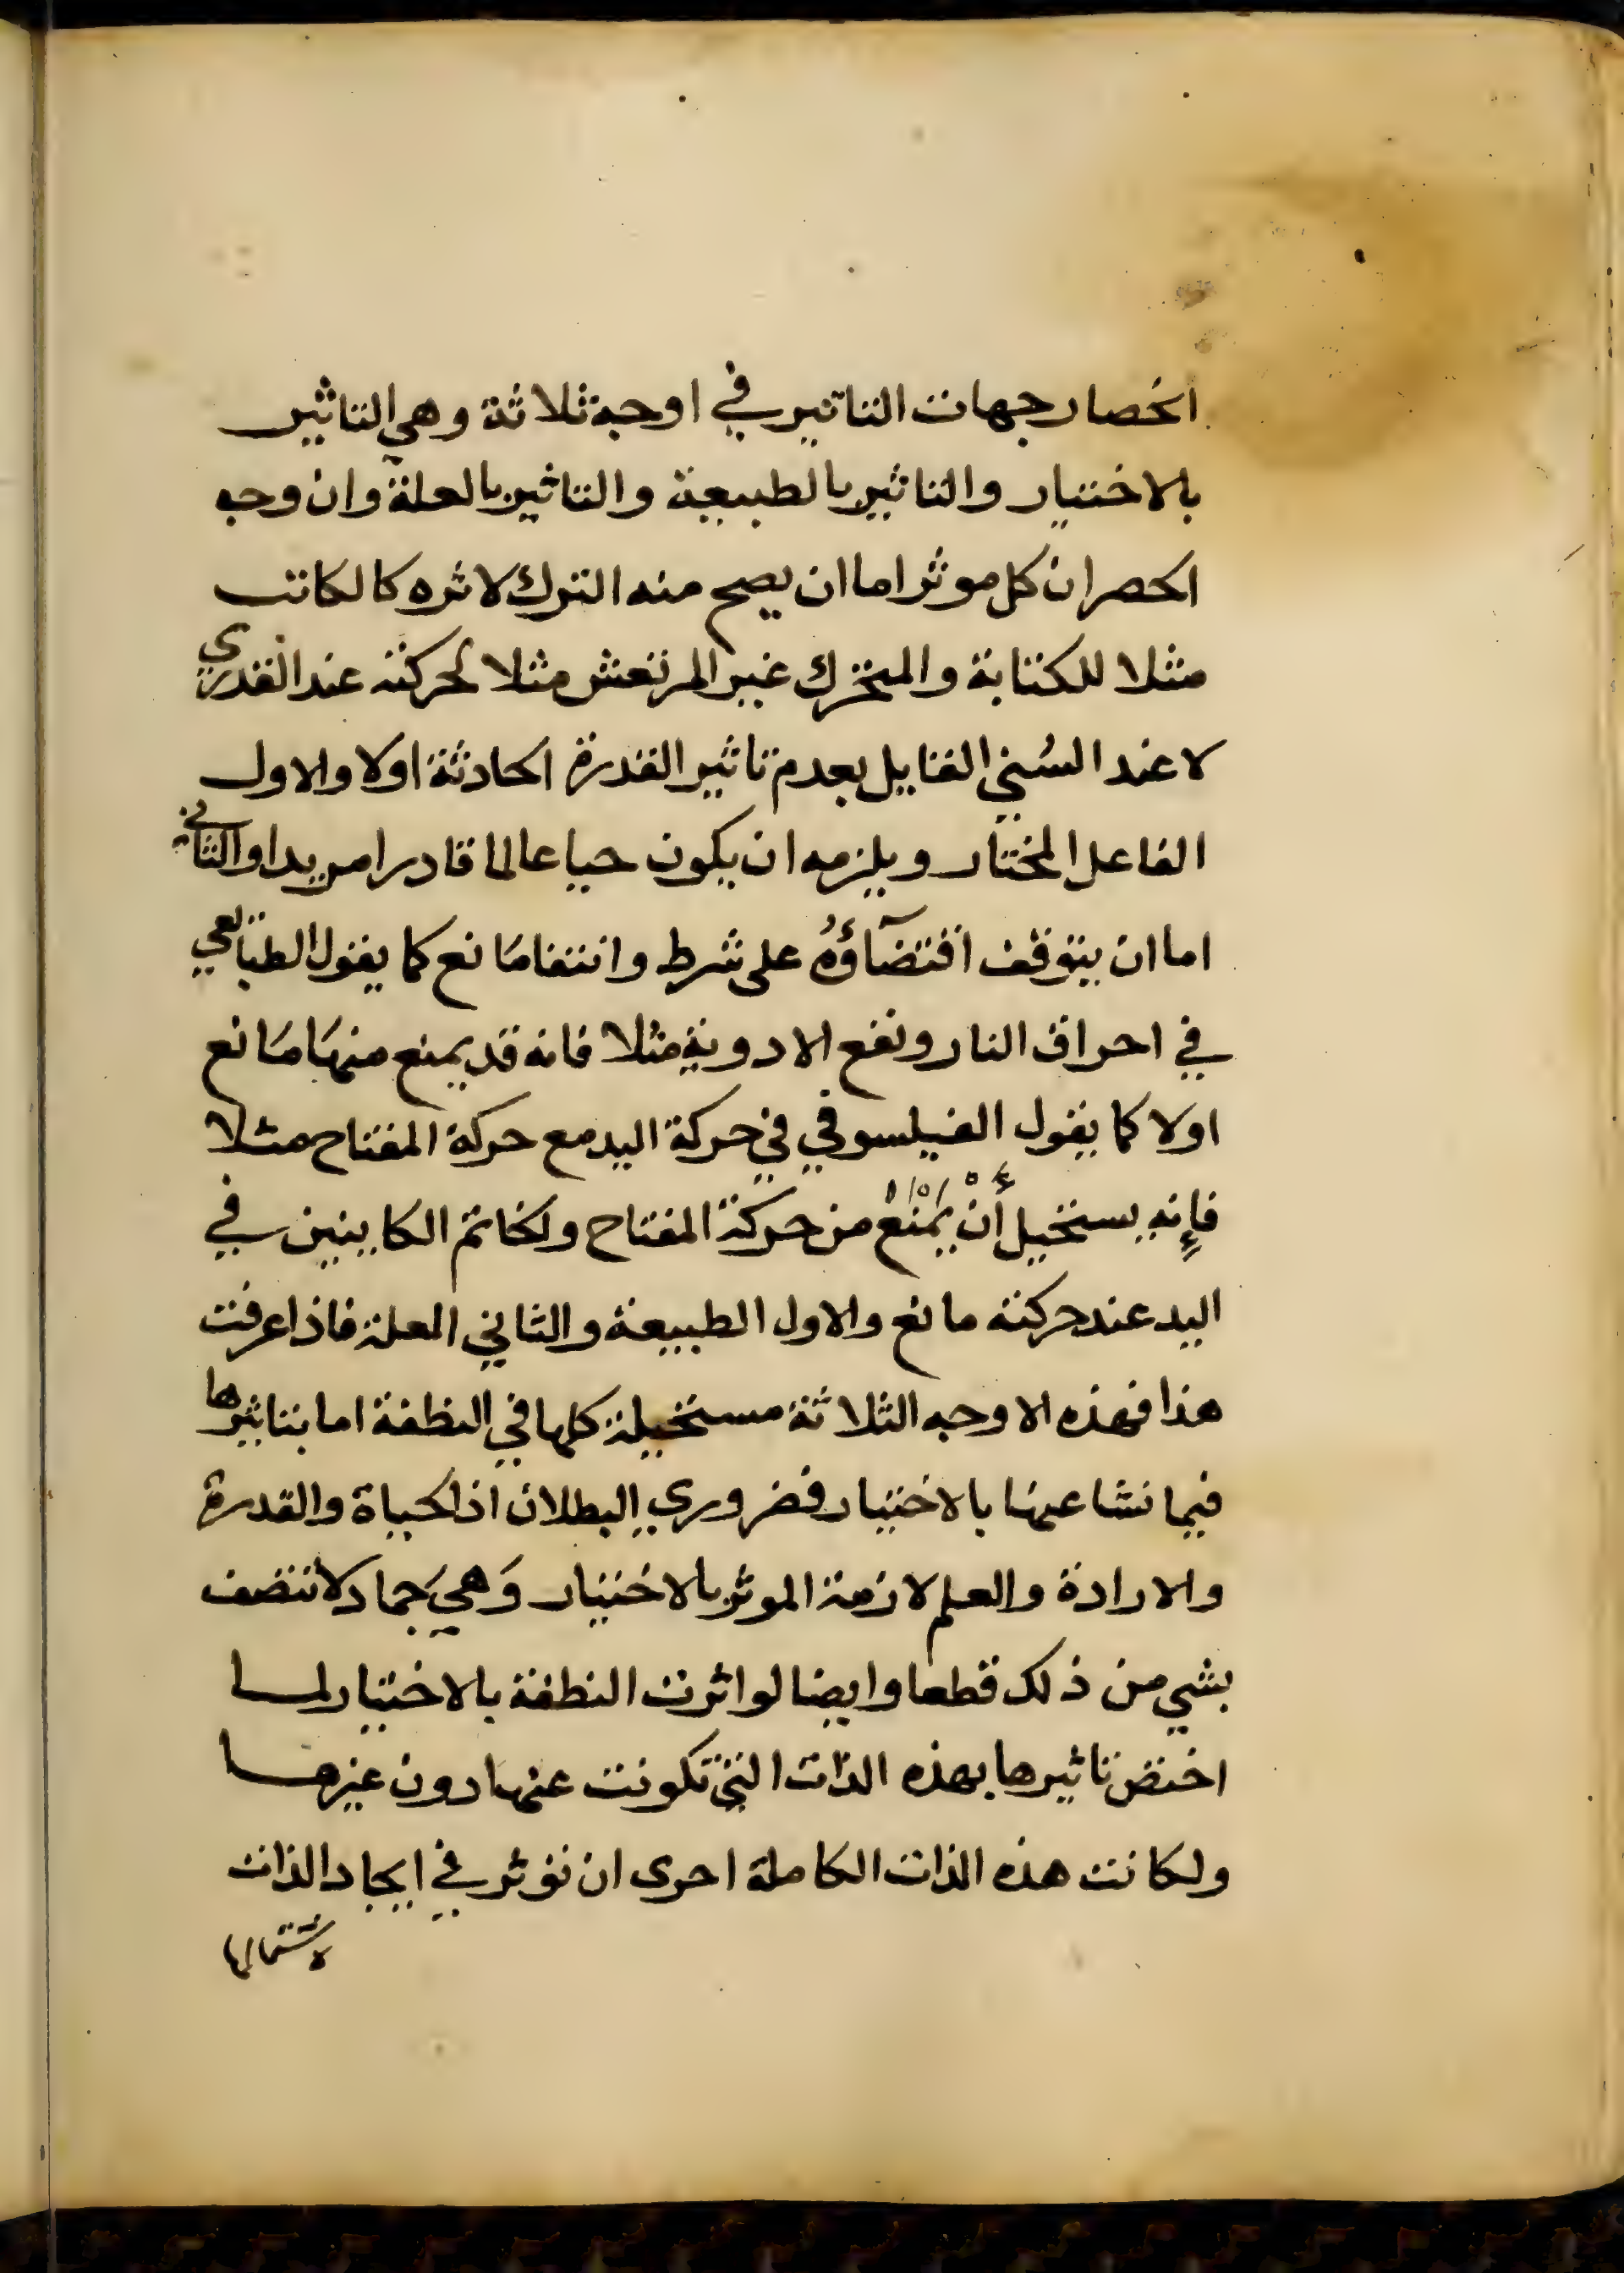 انحصار جهات التاثير في اوجه ثلاثة وهي التاثير
بالاختيار والتاثير بالطبيعة والتاثير بالعلة وان وجه
الحصر ان كل موثر اما ان يصح منه الترك لاثره كالكاتب
مثلا للكتابة والمتحرك غير المرتعش مثلا لحركته عند القدري
لا عند السُني القايل بعدم تاثير القدرة الحادثة اولا والاول
الفاعل المختار ويلزمه ان يكون حيا عالما قادرا مريدا والثاني
اما ان يتوقف اقتضآؤُهُ على شرط وانتفا مَانع كما يقول الطبَائعي
في احراق النار ونفع الادوية مثلا فانه قد يمنع منهَا مَانع
اولا كما يقول الفيلسوفي في حركة اليد مع حركة المفتاح مثلا
فإِنه يستحيل أَنْ يَمْنَعَ من حركة المفتاح والخاتم الكاينين في
اليد عند حركته مانع والاول الطبيعة والثاني العلة فاذا عرفت
هذا فهذه الاوجه الثلاثة مستحيلة كلها في النطفة اما بتاثيرها
فيما نشا عنها بالاختيار فضروري البطلان اذ الحياة والقدرة
والارادة والعلم لازمة الموثر بالاختيار وَهيَ جماد لا تتصف
بشي من ذلك قطعا وايضا لو اثرت النطفة بالاختيار لما
اختص تاثيرها بهذه الذات التي تكونت عنها دون غيرها
ولكانت هذه الذات الكاملة احرى ان توثر في ايجاد الذات
لاشتمالها